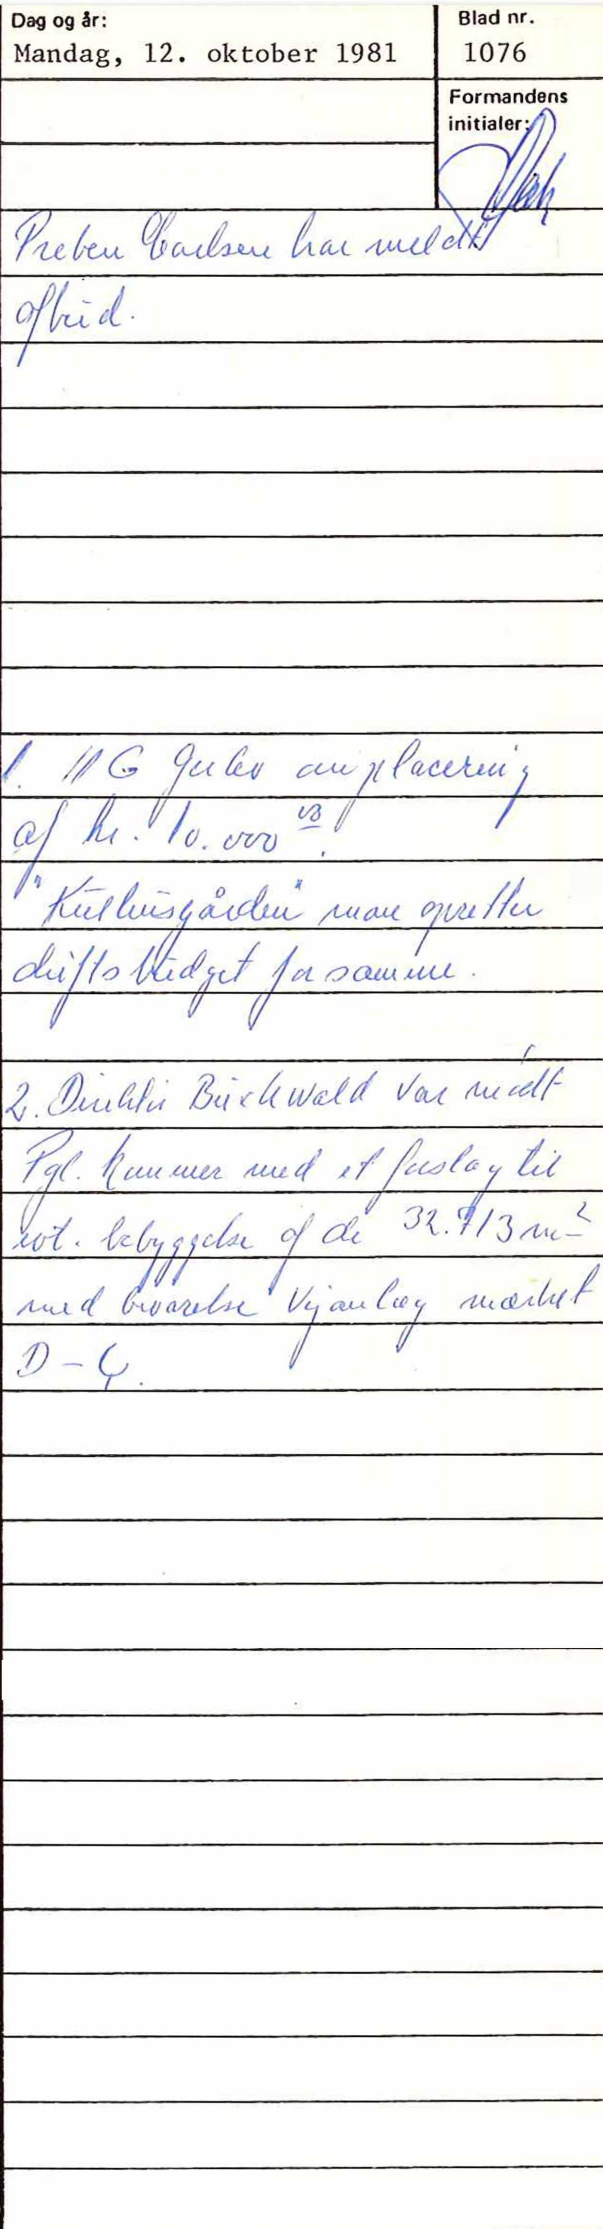 Dag og år:
Blad nr.
Mandag, 12. oktober 1981
1076
Formandens
initialer:
Preben Carlsen har meldt
afbud.
1. placering
af kr. 10.000
"Kulhusgården" man opretter
driftsbudget for samme.
2. Direktør Buchwald var mødt
Pgl. Kammer med et forslag til
evt. bebyggelse af de 32.713 m²
med bevarelse Vejanlæg mærket
D - G.